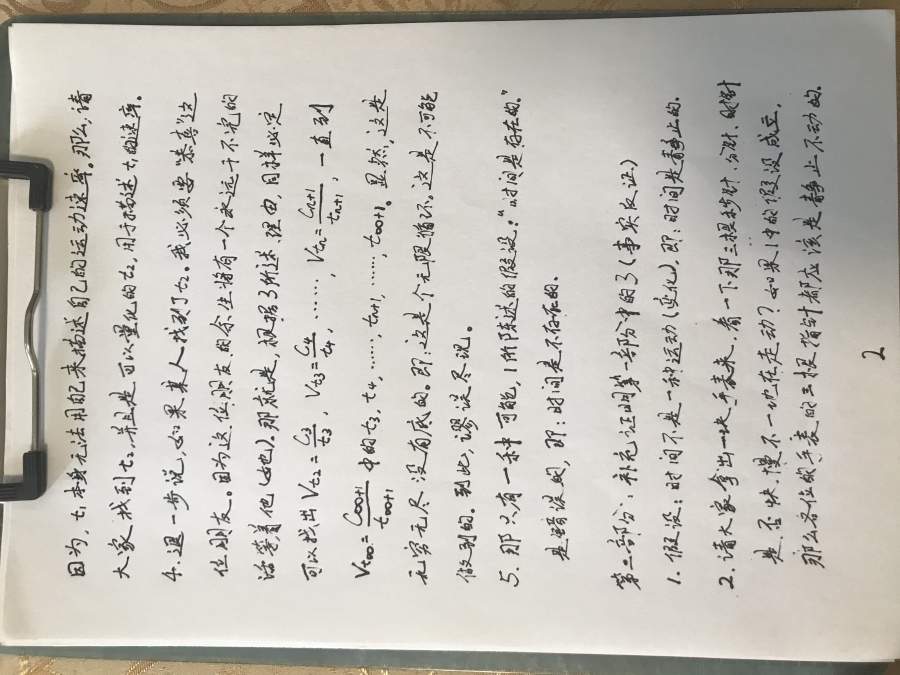 因为，t₁本身无法用自己来描述自己的运动速率。那么，请
大家找到t₂，并且是可以量化的t₂，用于描述t₁的速率。
4. 退一步说，如果某人找到了t₂。我必须要“恭喜”这
位朋友。因为这位朋友的余生将有一个永远干不完的
活等着他（她也）。那就是，根据3所述理由，同样必定
可以找出 Vt₂=C₃/t₃，Vt₃=C₄/t₄，……，Vtn=Cn+1/tn+1，一直到
Vt∞=C∞+1/t∞+1 中的t₃，t₄，……，tn+1，……，t∞+1。显然，这是
无穷无尽没有底的。即：这是个无限循环。这是不可能
做到的。到此，谬误尽现。
5. 那只有一种可能，1所陈述的假设：“时间是存在的。”
是错误的，即：时间是不存在的。
第二部分：补充证明第一部分中的3（事实反证）
1. 假设：时间不是一种运动（变化），即：时间是静止的。
2. 请大家拿出一块手表来，看一下那三根秒针、分针、时针
是否快、慢不一地在走动？如果1中的假设成立，
那么各位的手表的三根指针都应该是静止不动的。
2